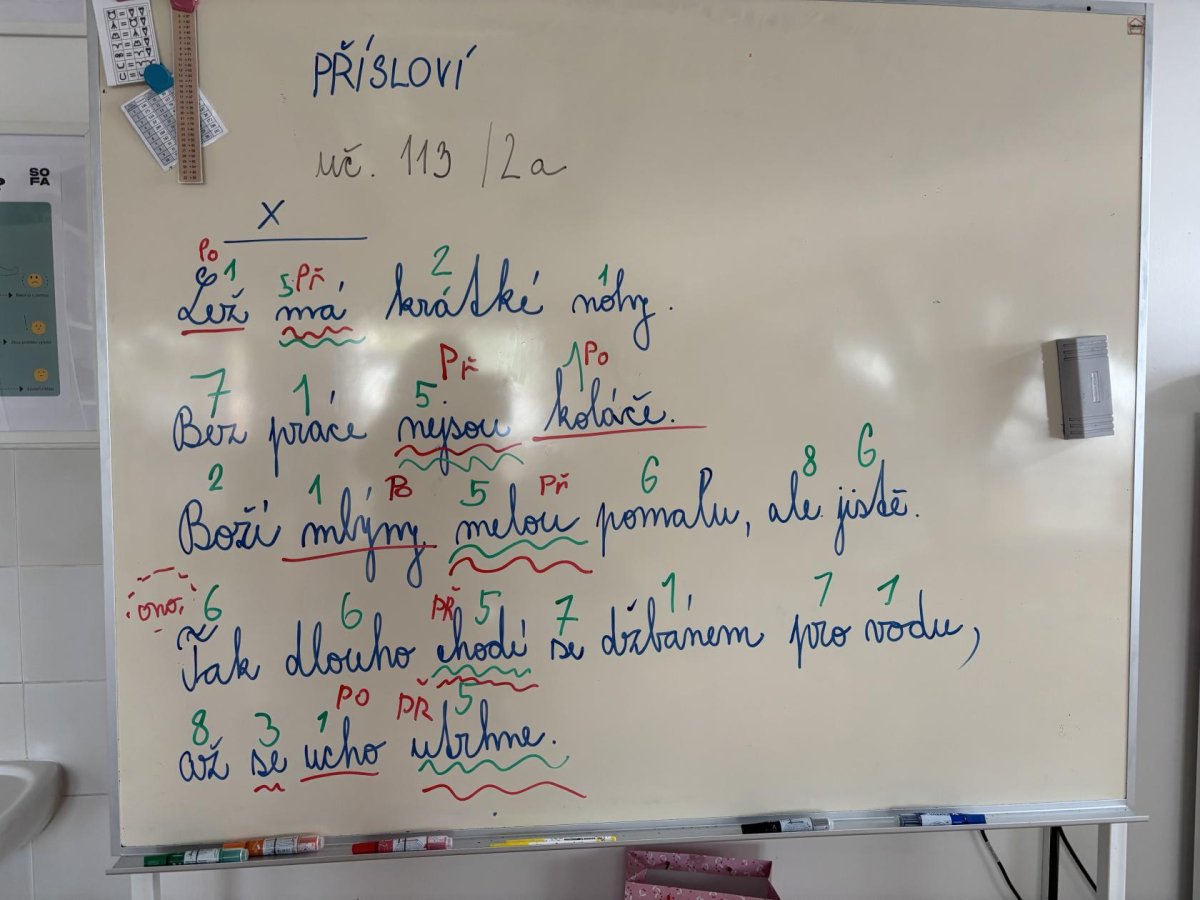 PŘÍSLOVÍ
uč. 113 /2a
X
Po 1 5 Př 2 1
Lež má krátké nohy.
7 1 5 Př 1 Po
Bez práce nejsou koláče.
2 1 Po 5 Př 6 8 6
Boží mlýny melou pomalu, ale jistě.
ono, 6 6 PŘ 5 7 1 7 1
Tak dlouho chodí se džbánem pro vodu,
8 3 1 PO PŘ 5
až se ucho utrhne.
SOFA